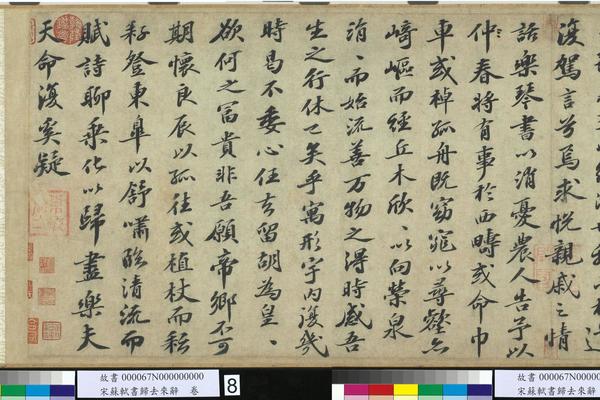 復駕言兮焉求悅親戚之情
話樂琴書以消憂農人告予以
仲春將有事於西疇或命巾
車或棹孤舟既窈窕以尋壑亦
崎嶇而經丘木欣〻以向榮泉
涓〻而始流善万物之得時感吾
生之行休已矣乎寓形宇内復幾
時曷不委心任去留胡為皇〻
欲何之富貴非吾願帝鄉不可
期懷良辰以孤往或植杖而耘
耔登東皋以舒嘯臨清流而
賦詩聊乘化以歸盡樂夫
天命復奚疑
故書 000067N000000000
宋蘇軾書歸去來辭 卷
8
故書 000067N
宋蘇軾書歸去來